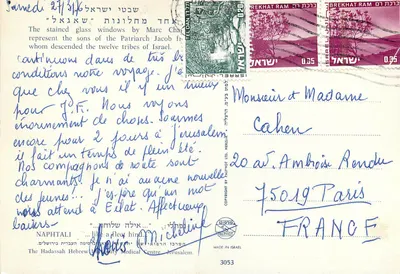 Samedi 27/3/76
שבטי ישראל
אחד מחלונות "שאגאל"
The stained glass windows by Marc Cha
represent the sons of the Patriarch Jacob f
whom descended the twelve tribes of Israel.
continuons dans de très b
conditions notre voyage. J'e
que chez vous il y a un mieux
pour J.F. Nous voyons
énormément de choses. Sommes
encore pour 2 jours à Jérusalem
il fait un temps de plein été.
Nos compagnons de route sont
charmants. Je n'ai aucune nouvelle
des jeunes... J'espère qu'un mot
nous attend à Eilat. Affectueux
baisers
Micheline
NAPHTALI
The Hadassah Hebrew Medical Centre Jerusalem
BREKHAT RAM ברכת רם
ישראל ISRAEL 0.35
BREKHAT RAM ברכת רם
ישראל ISRAEL 0.35
Monsieur et Madame
Cahen
20 av. Ambroise Rendu
75019 Paris
FRANCE
MADE IN ISRAEL
3053